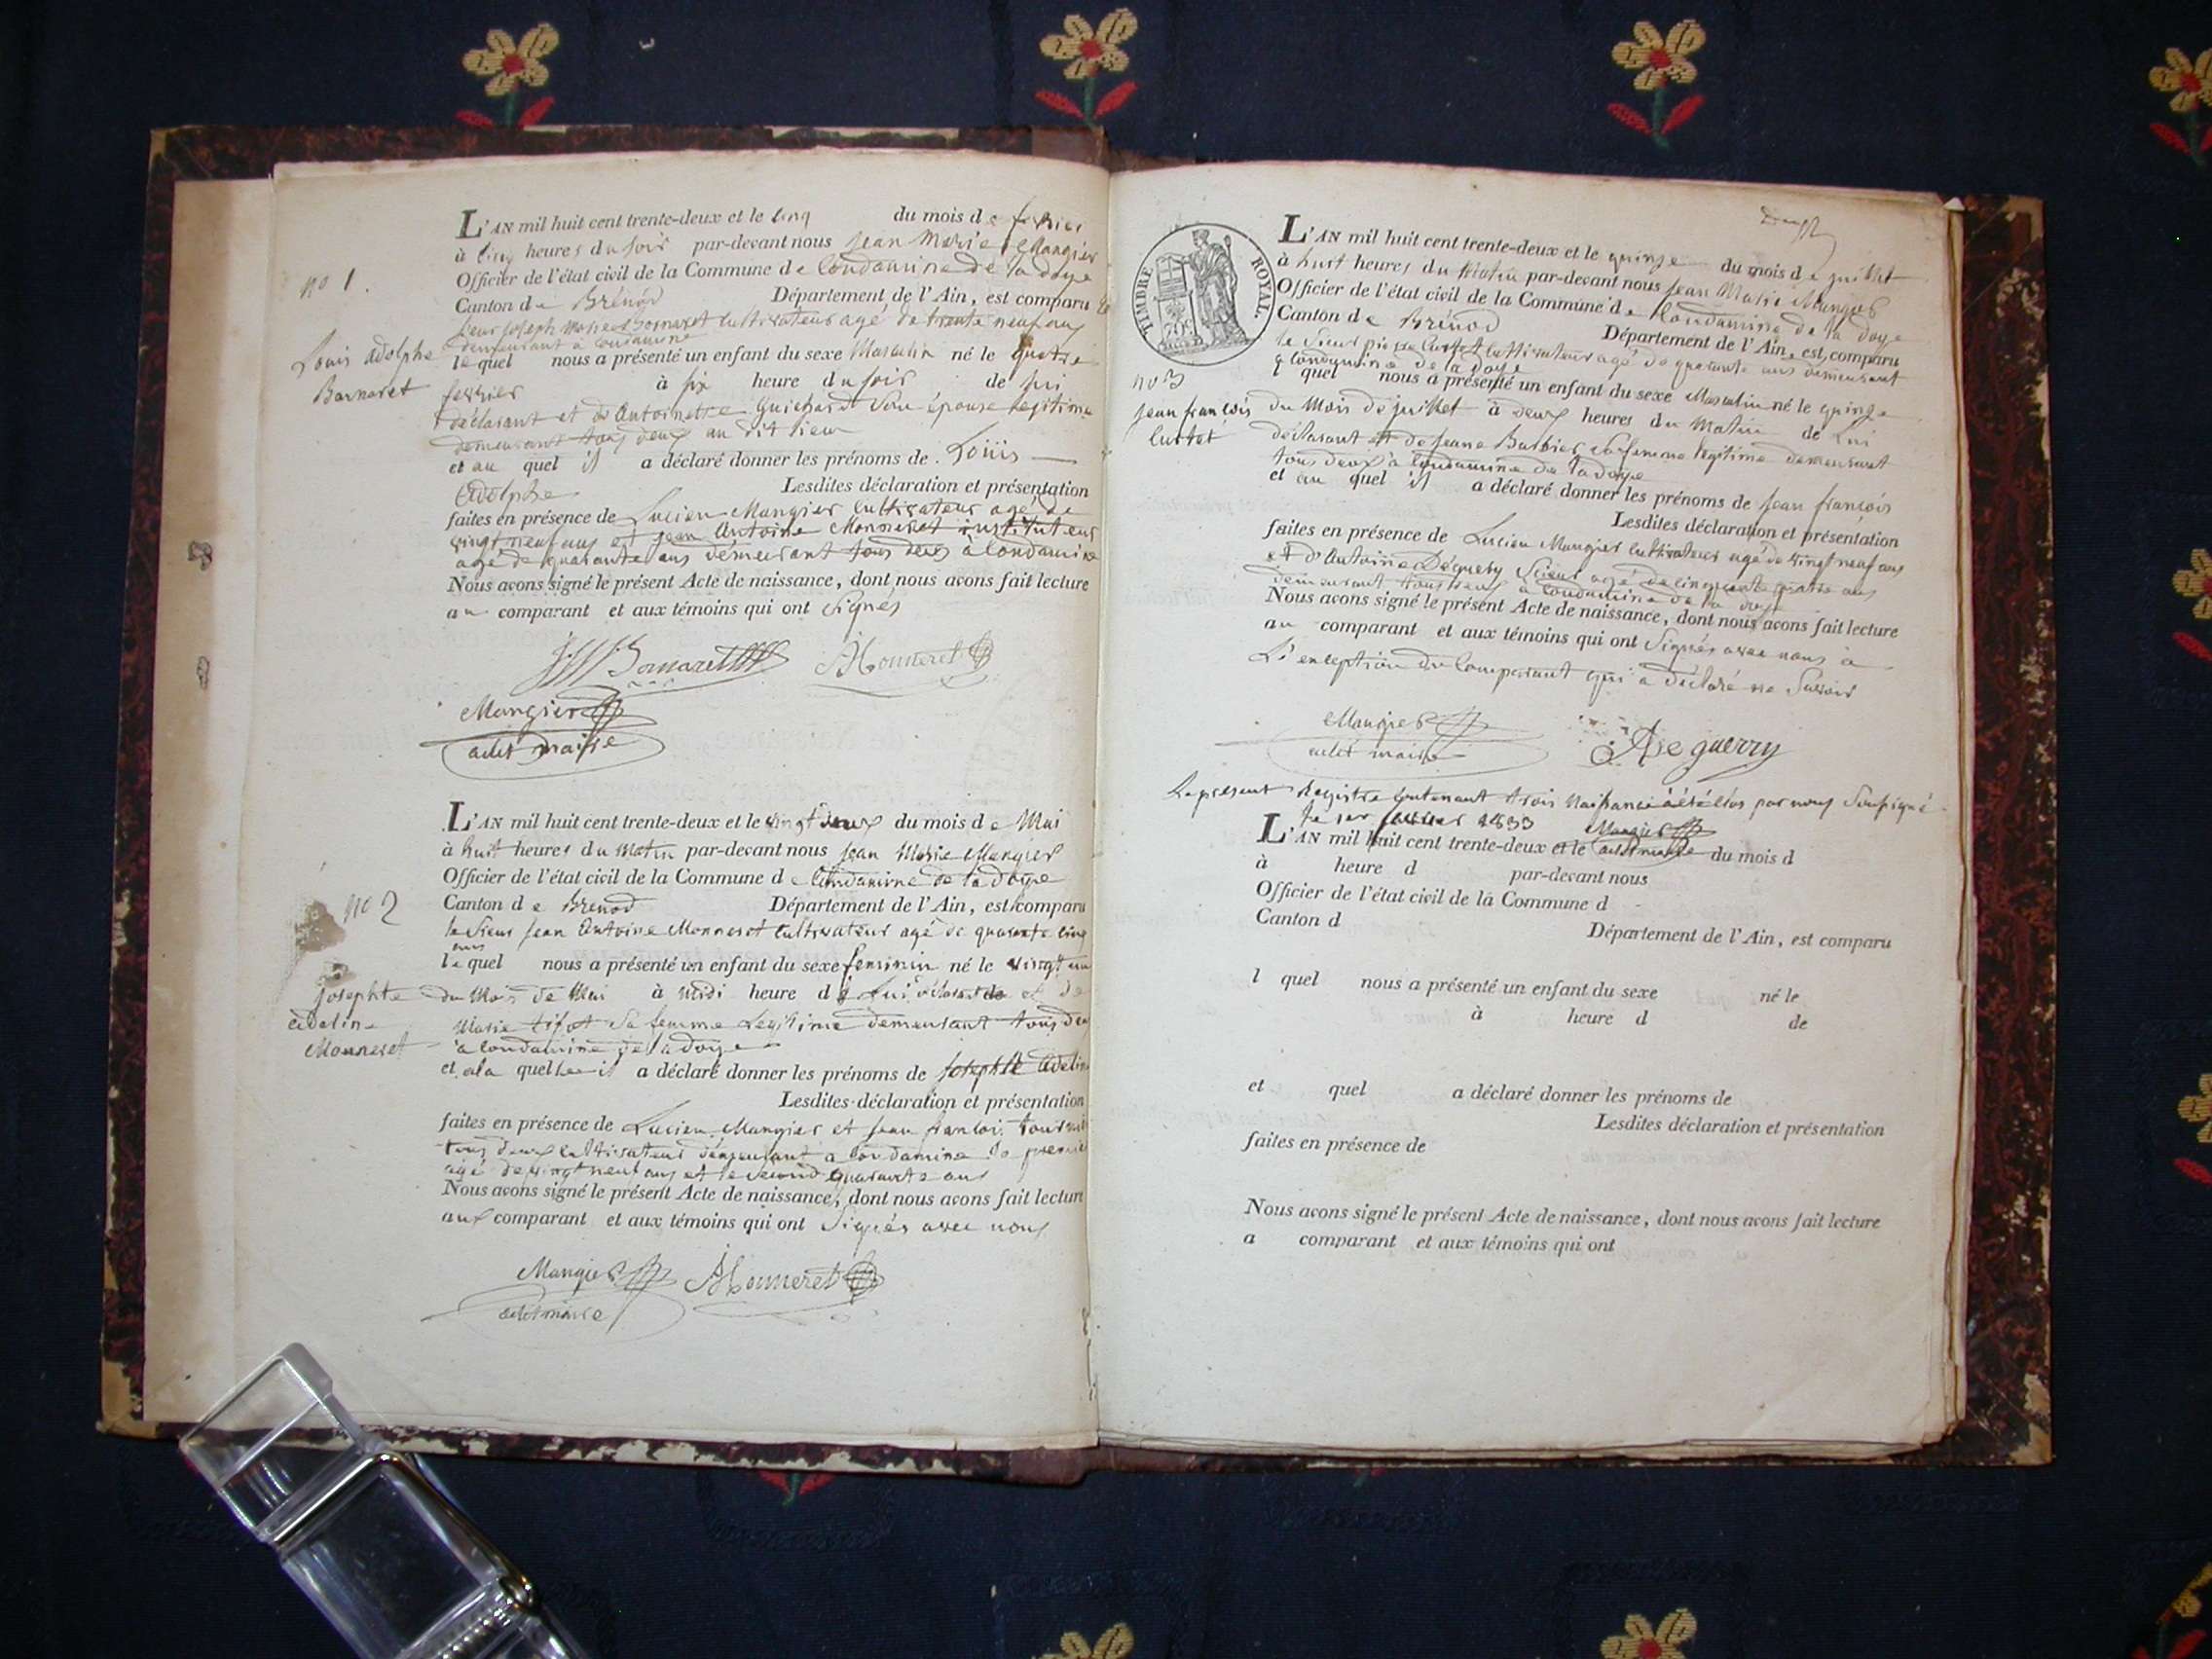 L'AN mil huit cent trente-deux et le cinq du mois de fevrier
à cinq heures du soir par-devant nous jean Marie Mangier
Officier de l'état civil de la Commune de Condamine de la doye
Canton de Brénod Département de l'Ain, est comparu le
sieur joseph marie Bornaret cultivateur agé de trente neuf ans
demeurant a Condamine
no 1.
Louis adolphe
Bornaret
lequel nous a présenté un enfant du sexe Masculin né le quatre
fevrier à six heure du soir de lui
déclarant et d'Antoinette Guichard son épouse legitime
demeurant tous deux au dit lieu
et au quel il a déclaré donner les prénoms de Louis
Adolphe Lesdites déclaration et présentation
faites en présence de Lucien Mangier cultivateur agé de
vingt neuf ans et jean Antoine Monneret instituteur
agé de quarante ans démeurant tous deux à Condamine
Nous avons signé le présent Acte de naissance, dont nous avons fait lecture
au comparant et aux témoins qui ont signés
Bornaret AMonneret
Mangier
adet maire
L'AN mil huit cent trente-deux et le vingt deux du mois de Mai
à huit heures du matin par-devant nous jean Marie Mangier
Officier de l'état civil de la Commune de Condamine de la doye
Canton de Brenod Département de l'Ain, est comparu
le sieur jean Antoine Monneret cultivateur agé de quarante cinq
ans
no 2
josephte
adeline
Monneret
lequel nous a présenté un enfant du sexe feminin né le vingt un
du mois de Mai à midi heure de Lui déclarant et de
Marie tifot sa femme Legitime demeurant tous deux
a Condamine de la doye
et a la quelle il a déclaré donner les prénoms de josephte adeline
Lesdites déclaration et présentation
faites en présence de Lucien Mangier et jean francois
tous deux cultivateurs démeurant a Condamine le premier
agé de vingt neuf ans et le second quarante ans
Nous avons signé le présent Acte de naissance, dont nous avons fait lecture
aux comparant et aux témoins qui ont signés avec nous
Mangier AMonneret
adet maire
TIMBRE ROYAL.
L'AN mil huit cent trente-deux et le quinze du mois de juillet
à huit heures du matin par-devant nous jean Marie Mangier
Officier de l'état civil de la Commune de Condamine de la doye
Canton de Brénod Département de l'Ain, est comparu
le sieur pierre Curtet cultivateur agé de quarante ans demeurant
a Condamine de la doye
no 3
jean françois
Curtet
l quel nous a présenté un enfant du sexe Masculin né le quinze
du mois de juillet à deux heures du matin de Lui
déclarant et de jeane Barbier sa femme legitime demeurant
tous deux à Condamine de la doye
et au quel il a déclaré donner les prénoms de jean françois
Lesdites déclaration et présentation
faites en présence de Lucien Mangier cultivateur agé de vingt neuf ans
et d'Antoine Déguery scieur agé de cinquante quatre ans
demeurant tous deux a Condamine de la doye
Nous avons signé le présent Acte de naissance, dont nous avons fait lecture
au comparant et aux témoins qui ont Signés avec nous à
L'exception du Comparant qui a déclaré ne savoir
Mangier ADeguerry
adet maire
Le present Registre contenant trois Naissance a été clos par nous Soussigné
le 1er janvier 1833 Mangier
adet maire
L'AN mil huit cent trente-deux et le du mois d
à heure d par-devant nous
Officier de l'état civil de la Commune d
Canton d Département de l'Ain, est comparu
l quel nous a présenté un enfant du sexe né le
à heure d de
et quel a déclaré donner les prénoms de
Lesdites déclaration et présentation
faites en présence de
Nous avons signé le présent Acte de naissance, dont nous avons fait lecture
a comparant et aux témoins qui ont